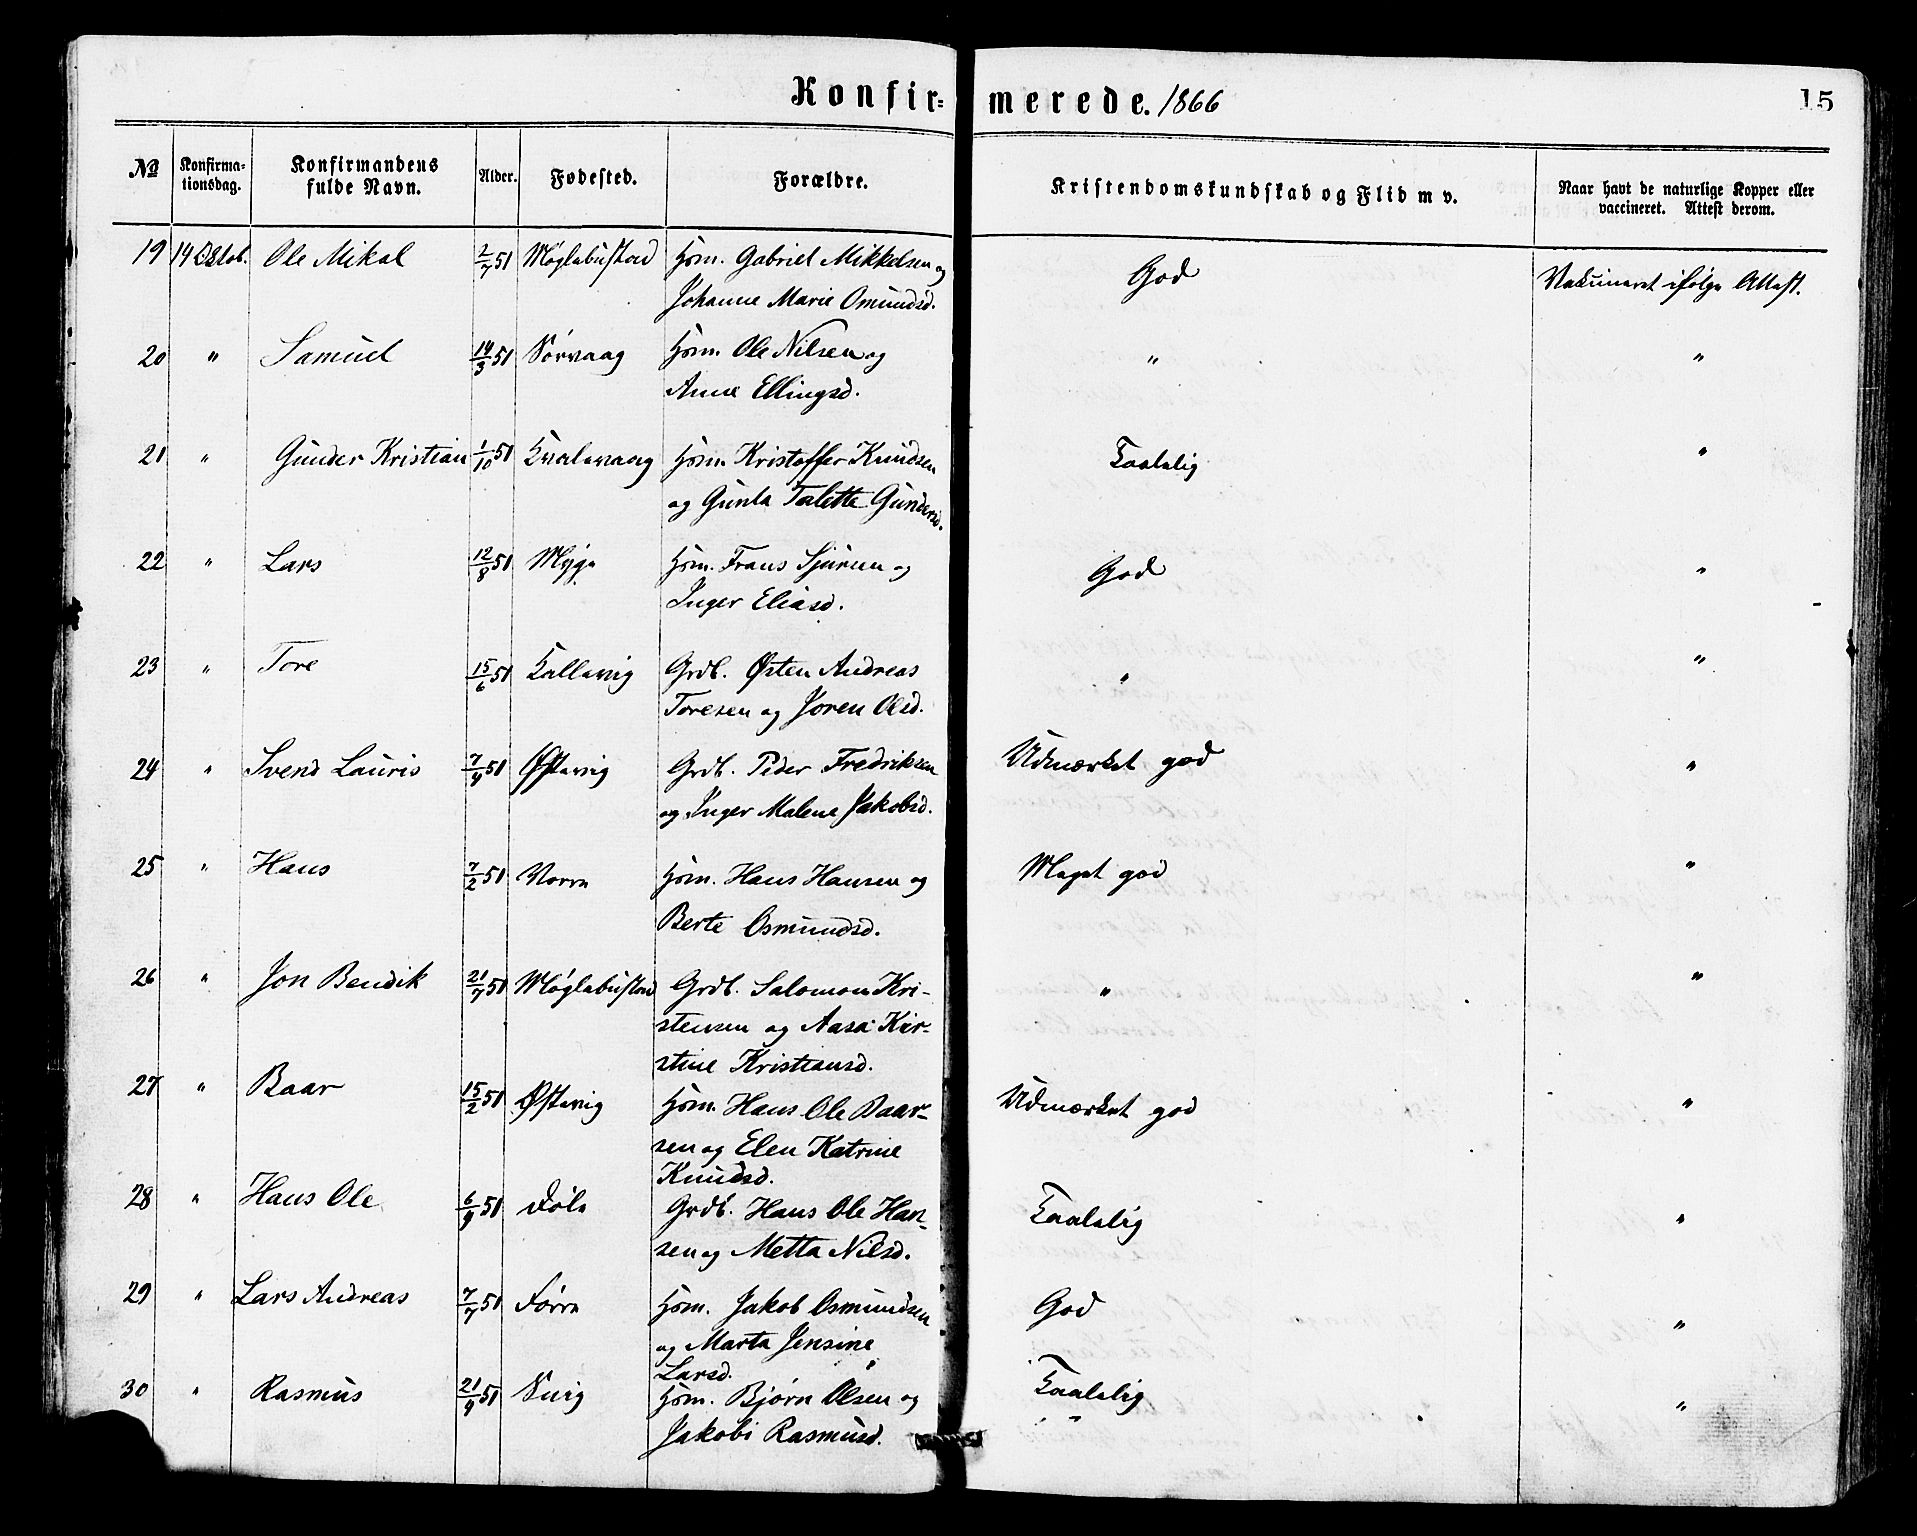 Konfir- merede. 1866 15
№ Konfirma-tionsdag. Konfirmandens fulde Navn. Alder. Fødested. Forældre. Kristendomskundskab og Flid m v. Naar havt de naturlige Kopper eller vaccineret. Attest derom.
19 14 Oktob. Ole Mikal 2/7 51 Møglabustad Hsm. Gabriel Mikkelsen og God Vakcineret ifølge Attest.
Johanne Marie Omundsd.
20 " Samuel 14/3 51 Sørvaag Hsm. Ole Nilsen og " "
Anne Ellingsd.
21 " Gunder Kristian 1/10 51 Kvalavaag Hsm. Kristoffer Knudsen Taalelig "
og Gunla Talette Gundersd.
22 " Lars 12/8 51 Myge Hsm. Frans Sjursen og God "
Inger Eliasd.
23 " Tore 15/6 51 Kallavig Grdb. Østen Andreas " "
Toresen og Joren Olsd.
24 " Svend Lauris 7/9 51 Østavig Grdb. Peder Fredriksen Udmærket god "
og Inger Malene Jakobsd.
25 " Hans 7/2 51 Vorre Hsm. Hans Hansen og Meget god "
Berte Osmundsd.
26 " Jon Bendik 21/7 51 Møglabustad Grdb. Salomon Kri- " "
stensen og Aasa Kir-
stine Kristiansd.
27 " Baar 15/2 51 Østavig Hsm. Hans Ole Baar- Udmærket god "
sen og Elen Katrine
Knudsd.
28 " Hans Ole 6/9 51 Døle Grdb. Hans Ole Han- Taalelig "
sen og Metta Nilsd.
29 " Lars Andreas 7/7 51 Førre Hsm. Jakob Osmundsen God "
og Marta Jensine
Larsd.
30 " Rasmus 21/9 51 Hsm. Bjørn Olsen og Taalelig "
Jakobi Rasmusd. "